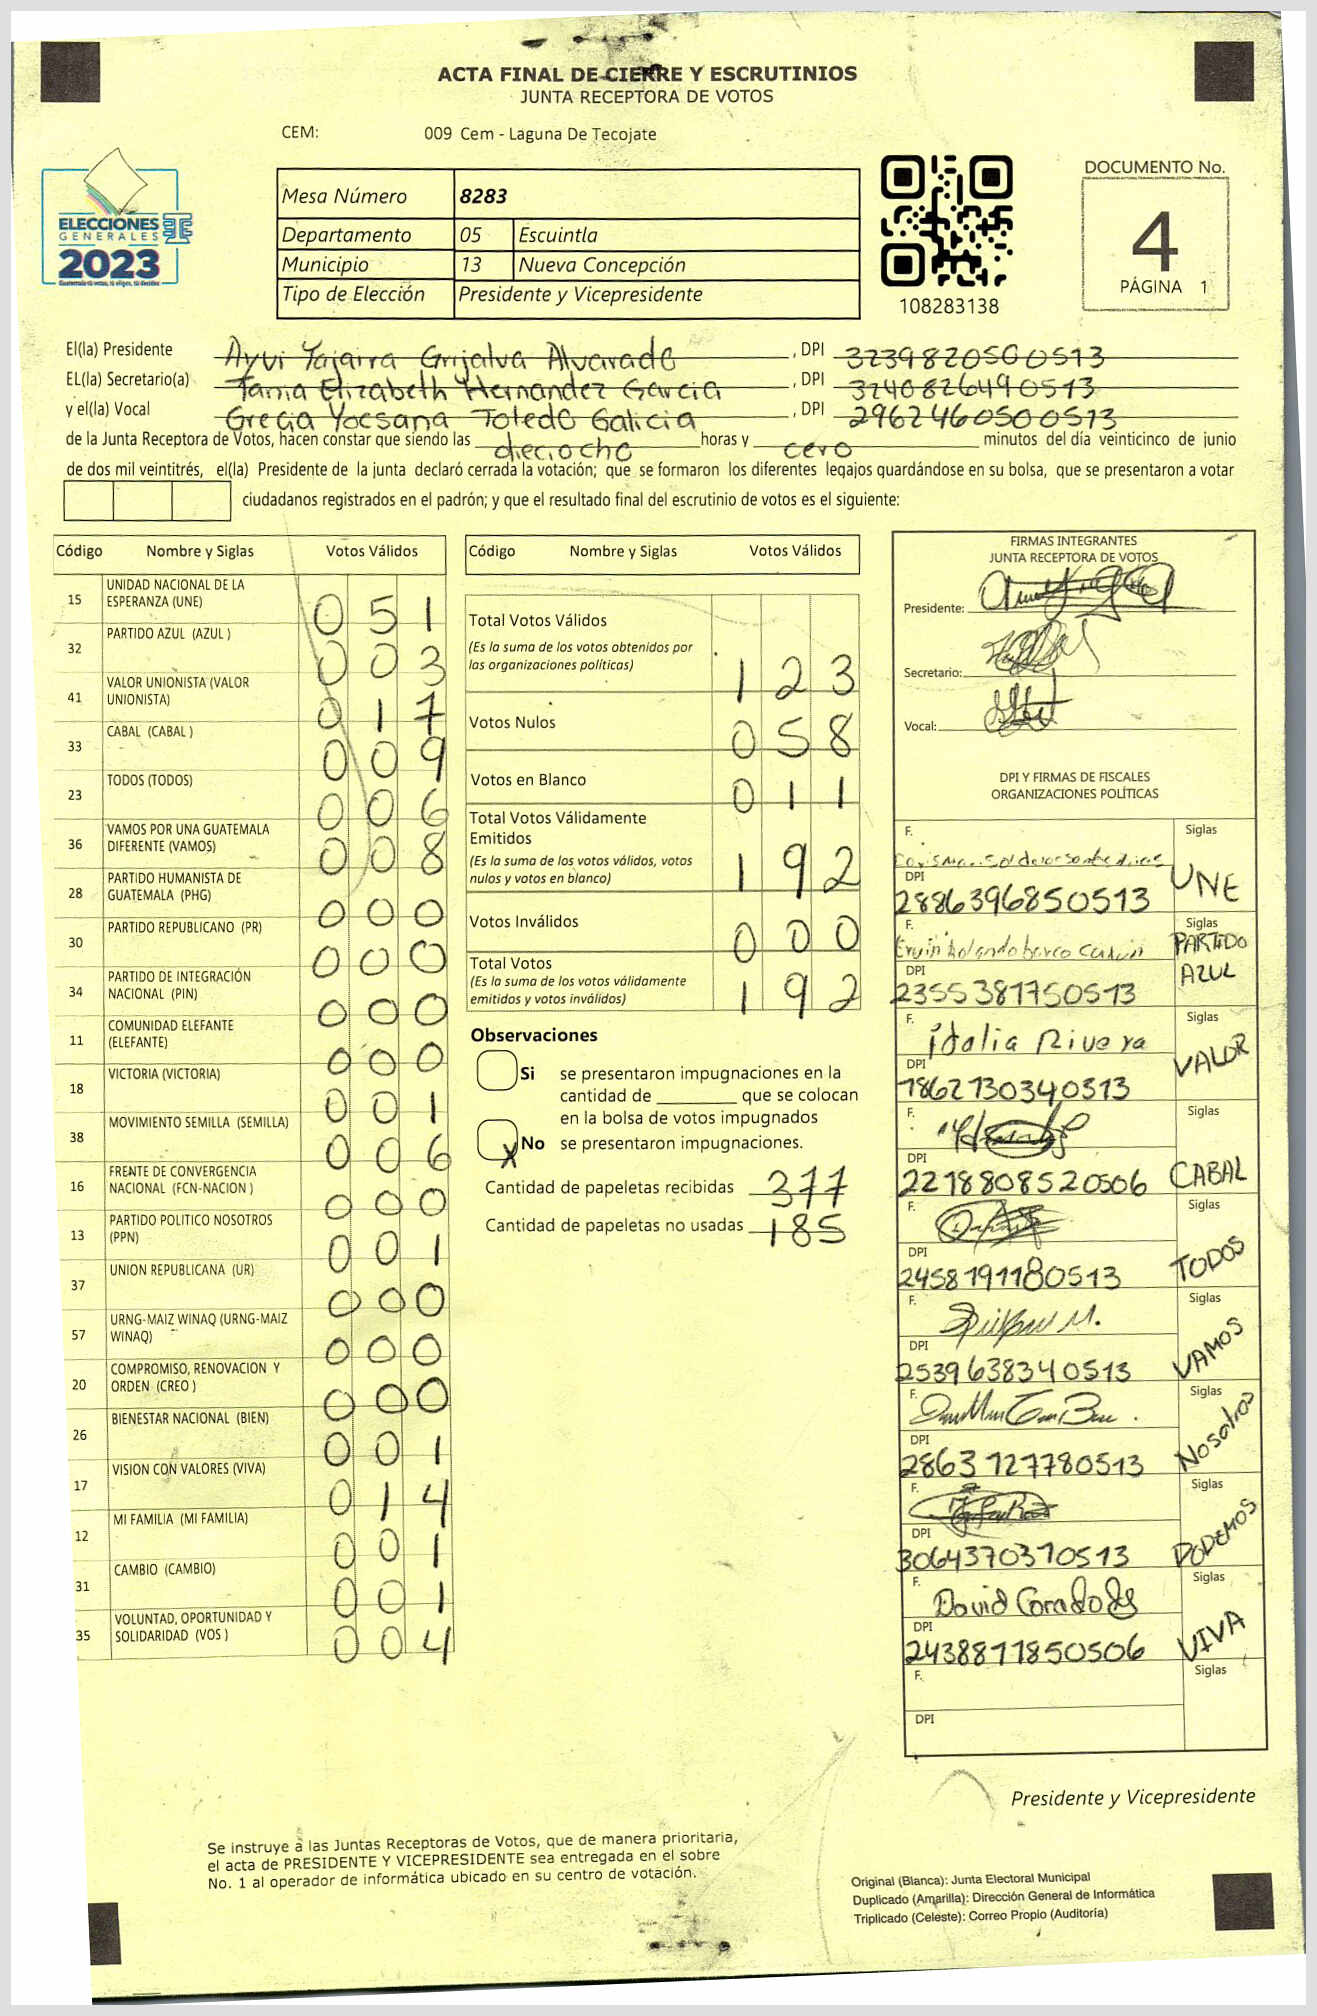 ACTA FINAL DE CIERRE Y ESCRUTINIOS
JUNTA RECEPTORA DE VOTOS
CEM: 009 Cem - Laguna De Tecojate
ELECCIONES
GENERALES
2023
Mesa Número 8283
Departamento 05 Escuintla
Municipio 13 Nueva Concepción
Tipo de Elección Presidente y Vicepresidente
108283138
DOCUMENTO No.
4
PÁGINA 1
El(la) Presidente Ayvi Yajaira Grijalva Alvarado , DPI 3239820500513
EL(la) Secretario(a) Tania Elizabeth Hernandez Garcia , DPI 3240826490513
y el(la) Vocal Grecia Yocsana Toledo Galicia , DPI 2962460500513
de la Junta Receptora de Votos, hacen constar que siendo las dieciocho horas y cero minutos del día veinticinco de junio
de dos mil veintitrés, el(la) Presidente de la junta declaró cerrada la votación; que se formaron los diferentes legajos guardándose en su bolsa, que se presentaron a votar
ciudadanos registrados en el padrón; y que el resultado final del escrutinio de votos es el siguiente:
Código Nombre y Siglas Votos Válidos
15 UNIDAD NACIONAL DE LA ESPERANZA (UNE) 0 5 1
32 PARTIDO AZUL (AZUL ) 0 0 3
41 VALOR UNIONISTA (VALOR UNIONISTA) 0 1 7
33 CABAL (CABAL ) 0 0 9
23 TODOS (TODOS) 0 0 6
36 VAMOS POR UNA GUATEMALA DIFERENTE (VAMOS) 0 0 8
28 PARTIDO HUMANISTA DE GUATEMALA (PHG) 0 0 0
30 PARTIDO REPUBLICANO (PR) 0 0 0
34 PARTIDO DE INTEGRACIÓN NACIONAL (PIN) 0 0 0
11 COMUNIDAD ELEFANTE (ELEFANTE) 0 0 0
18 VICTORIA (VICTORIA) 0 0 1
38 MOVIMIENTO SEMILLA (SEMILLA) 0 0 6
16 FRENTE DE CONVERGENCIA NACIONAL (FCN-NACION ) 0 0 0
13 PARTIDO POLITICO NOSOTROS (PPN) 0 0 1
37 UNION REPUBLICANA (UR) 0 0 0
57 URNG-MAIZ WINAQ (URNG-MAIZ WINAQ) 0 0 0
20 COMPROMISO, RENOVACION Y ORDEN (CREO ) 0 0 0
26 BIENESTAR NACIONAL (BIEN) 0 0 1
17 VISION CON VALORES (VIVA) 0 1 4
12 MI FAMILIA (MI FAMILIA) 0 0 1
31 CAMBIO (CAMBIO) 0 0 1
35 VOLUNTAD, OPORTUNIDAD Y SOLIDARIDAD (VOS ) 0 0 4
Código Nombre y Siglas Votos Válidos
Total Votos Válidos
(Es la suma de los votos obtenidos por
las organizaciones políticas) 1 2 3
Votos Nulos 0 5 8
Votos en Blanco 0 1 1
Total Votos Válidamente
Emitidos
(Es la suma de los votos válidos, votos
nulos y votos en blanco) 1 9 2
Votos Inválidos 0 0 0
Total Votos
(Es la suma de los votos válidamente
emitidos y votos inválidos) 1 9 2
Observaciones
Si se presentaron impugnaciones en la
cantidad de ________ que se colocan
en la bolsa de votos impugnados
X No se presentaron impugnaciones.
Cantidad de papeletas recibidas 377
Cantidad de papeletas no usadas 185
FIRMAS INTEGRANTES
JUNTA RECEPTORA DE VOTOS
Presidente:
Secretario:
Vocal:
DPI Y FIRMAS DE FISCALES
ORGANIZACIONES POLÍTICAS
F. Siglas
DPI UNE
2886396850513
F. Siglas
DPI PARTIDO AZUL
2355381750513
F. Idalia Rivera Siglas
DPI VALOR
1862730340513
F. Siglas
DPI
2218808520506 CABAL
F. Siglas
DPI TODOS
2458191180513
F. Siglas
DPI VAMOS
2539638340513
F. Siglas
DPI Nosotros
2863727780513
F. Siglas
DPI PODEMOS
3064370370513
F. David Siglas
DPI VIVA
2438811850506
F. Siglas
DPI
Presidente y Vicepresidente
Se instruye a las Juntas Receptoras de Votos, que de manera prioritaria,
el acta de PRESIDENTE Y VICEPRESIDENTE sea entregada en el sobre
No. 1 al operador de informática ubicado en su centro de votación.
Original (Blanca): Junta Electoral Municipal
Duplicado (Amarilla): Dirección General de Informática
Triplicado (Celeste): Correo Propio (Auditoría)